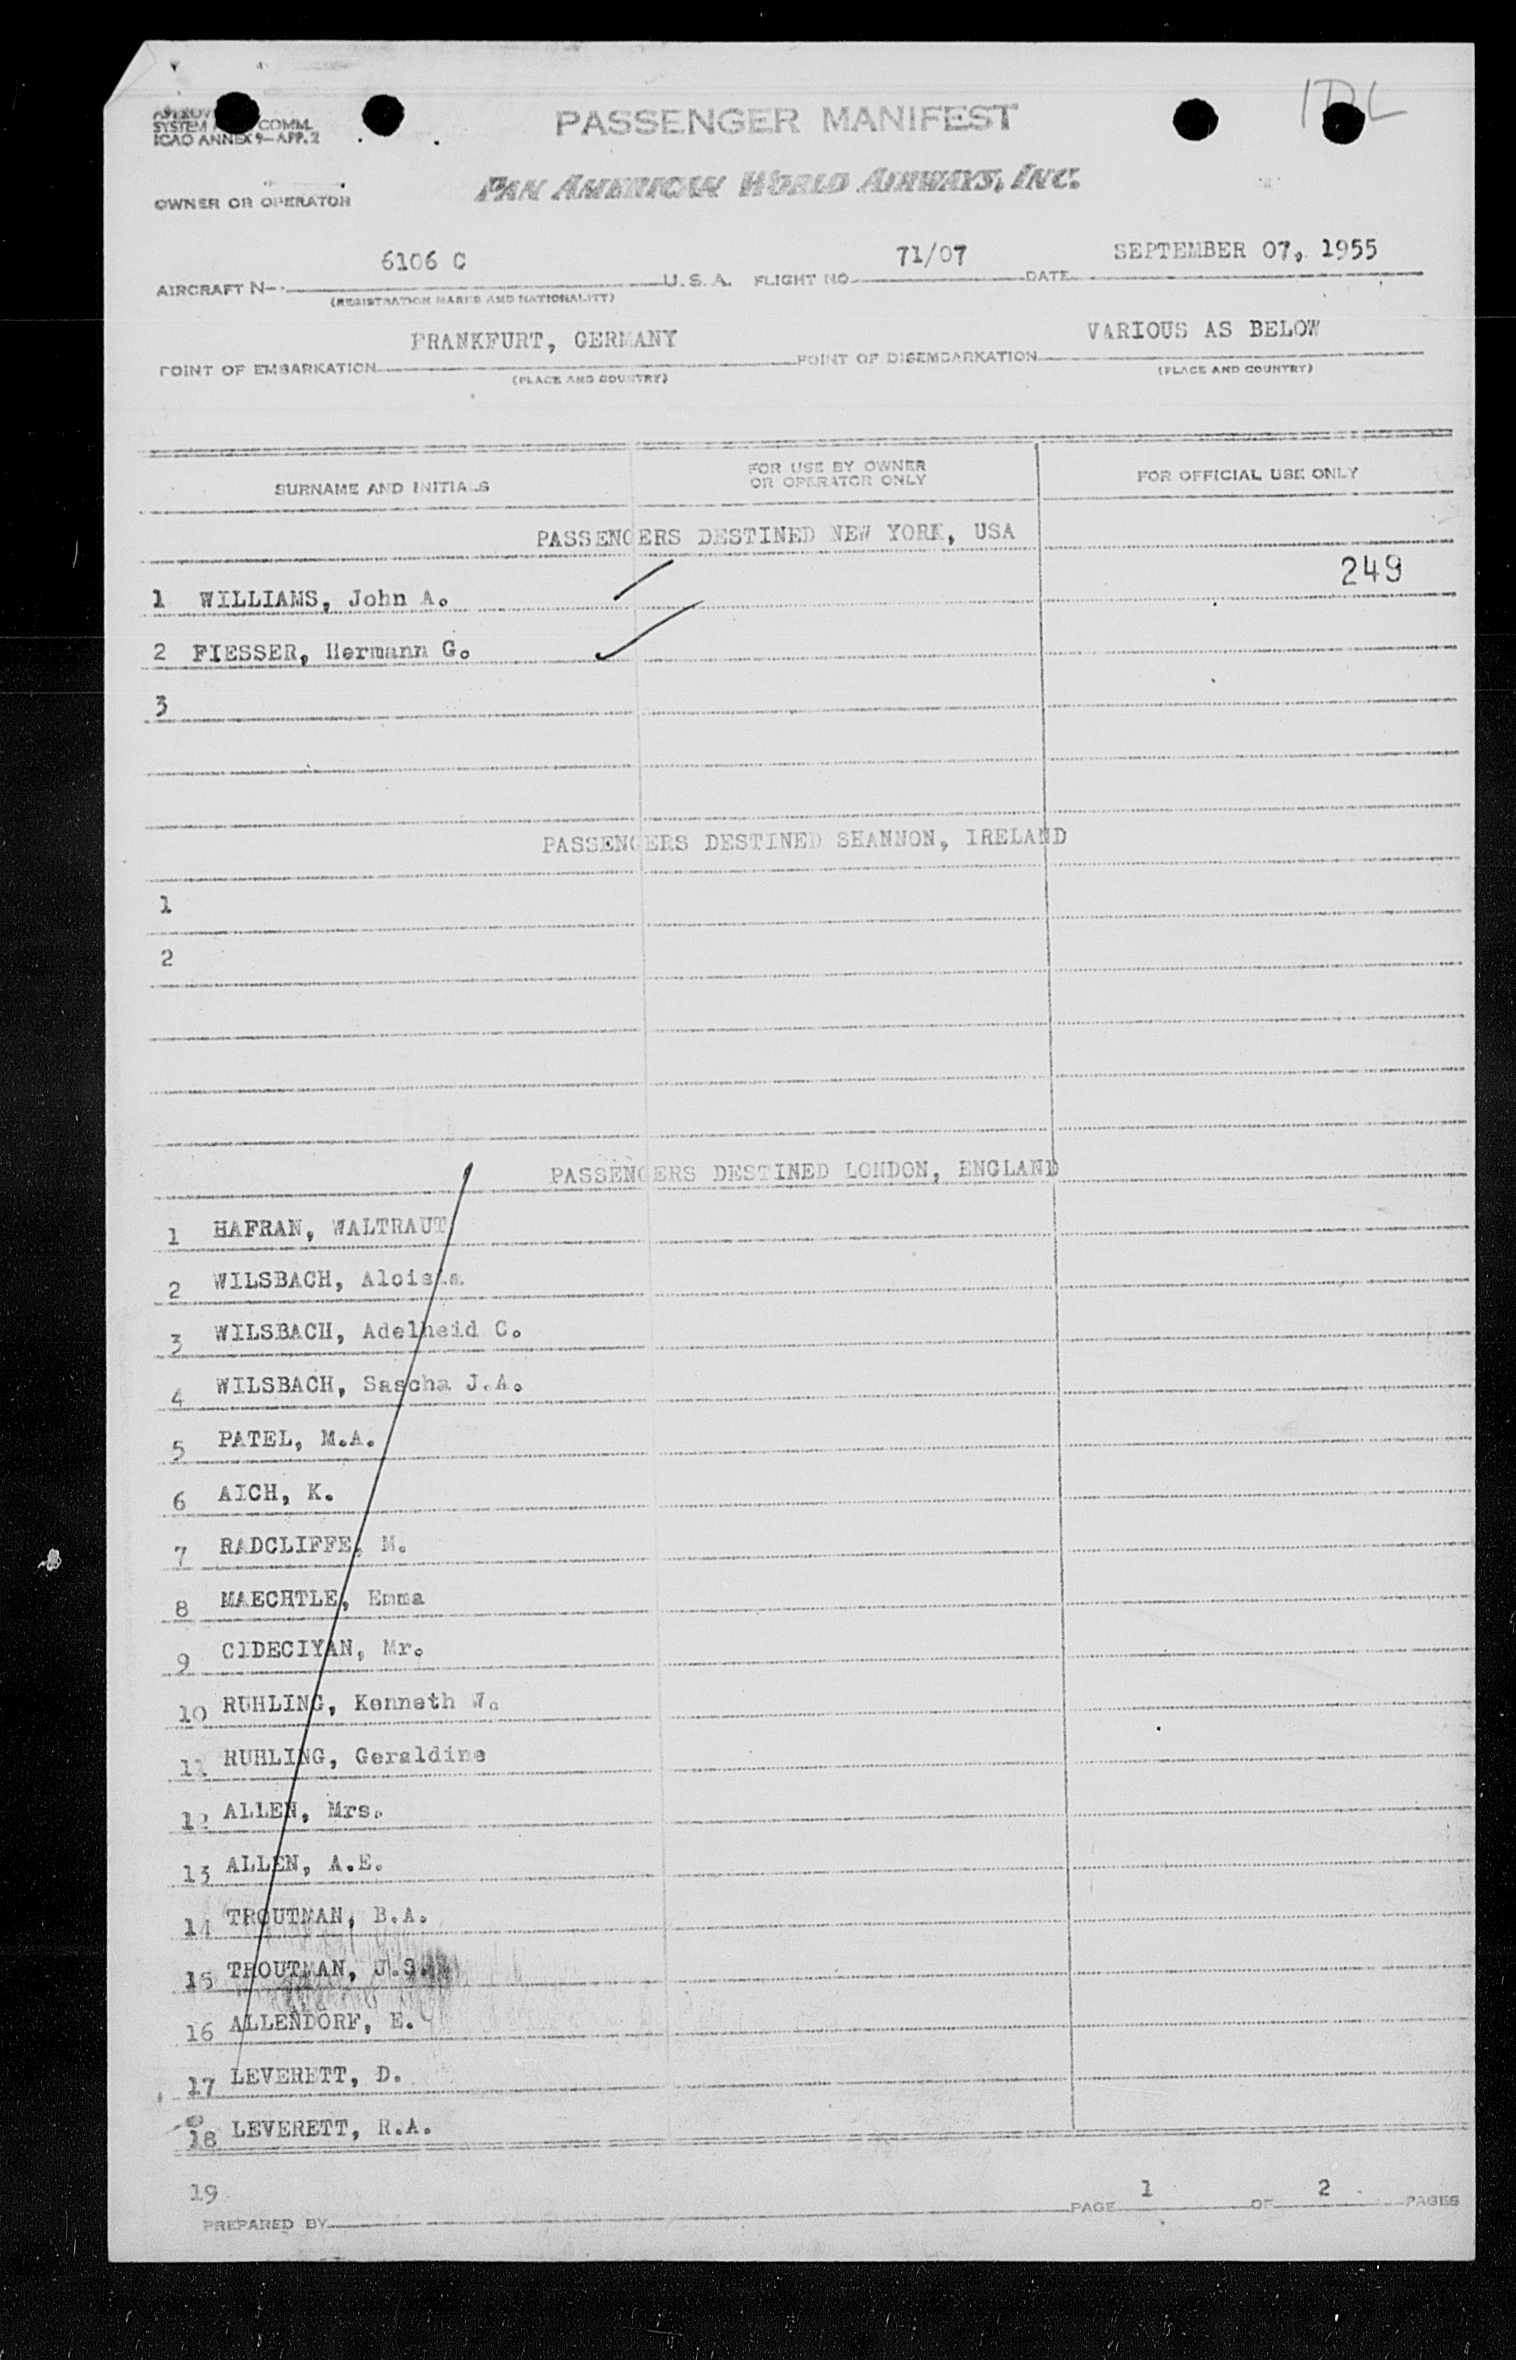 IDL
PASSENGER MANIFEST
SYSTEM COMM.
ICAO ANNEX 9-APP. 2
PAN AMERICAN WORLD AIRWAYS, INC.
OWNER OR OPERATOR
AIRCRAFT N- 6106 C U. S. A. FLIGHT NO. 71/07 DATE SEPTEMBER 07, 1955
(REGISTRATION MARKS AND NATIONALITY)
POINT OF EMBARKATION FRANKFURT, GERMANY POINT OF DISEMBARKATION VARIOUS AS BELOW
(PLACE AND COUNTRY) (PLACE AND COUNTRY)
SURNAME AND INITIALS FOR USE BY OWNER OR OPERATOR ONLY FOR OFFICIAL USE ONLY
PASSENGERS DESTINED NEW YORK, USA
249
1 WILLIAMS, John A.
2 FIESSER, Hermann G.
3
PASSENGERS DESTINED SHANNON, IRELAND
1
2
PASSENGERS DESTINED LONDON, ENGLAND
1 HAFRAN, WALTRAUT
2 WILSBACH, Aloisia
3 WILSBACH, Adelheid C.
4 WILSBACH, Sascha J.A.
5 PATEL, M.A.
6 AICH, K.
7 RADCLIFFE, M.
8 MAECHTLE, Emma
9 CIDECIYAN, Mr.
10 RUHLING, Kenneth W.
11 RUHLING, Geraldine
12 ALLEN, Mrs.
13 ALLEN, A.E.
14 TROUTMAN, B.A.
15 TROUTMAN, J.S.
16 ALLENDORF, E.
17 LEVERETT, D.
18 LEVERETT, R.A.
19
PREPARED BY PAGE 1 OF 2 PAGES